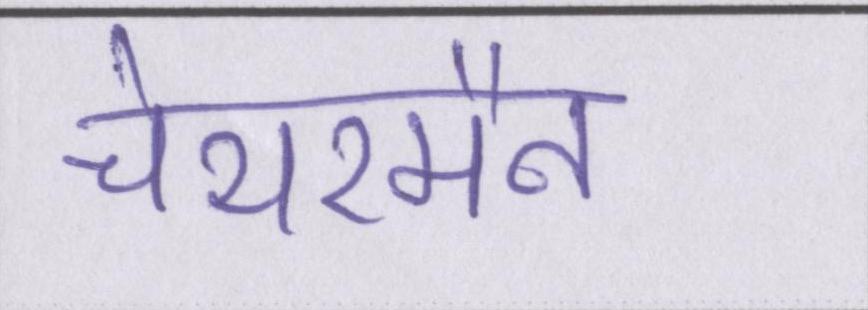 चेयरमैन